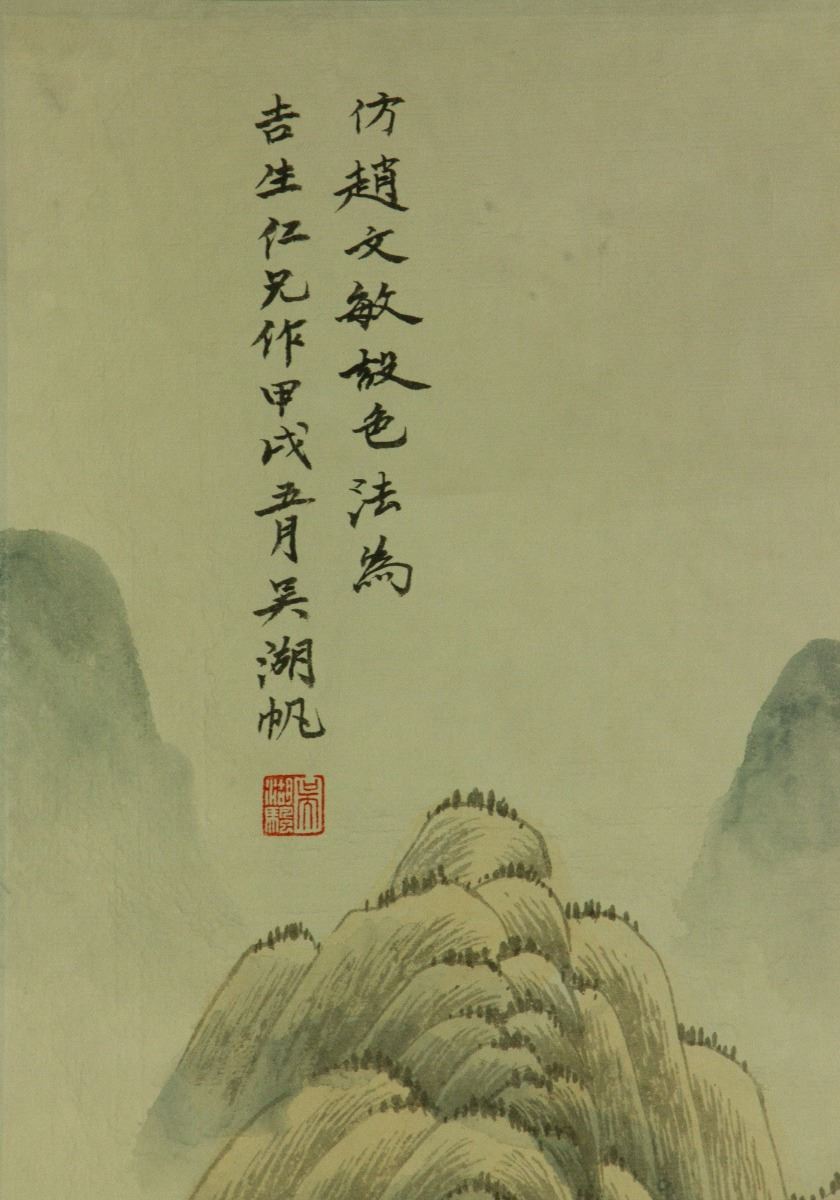 仿趙文敏設色法為
吉生仁兄作甲戌五月吳湖帆
吳湖驄